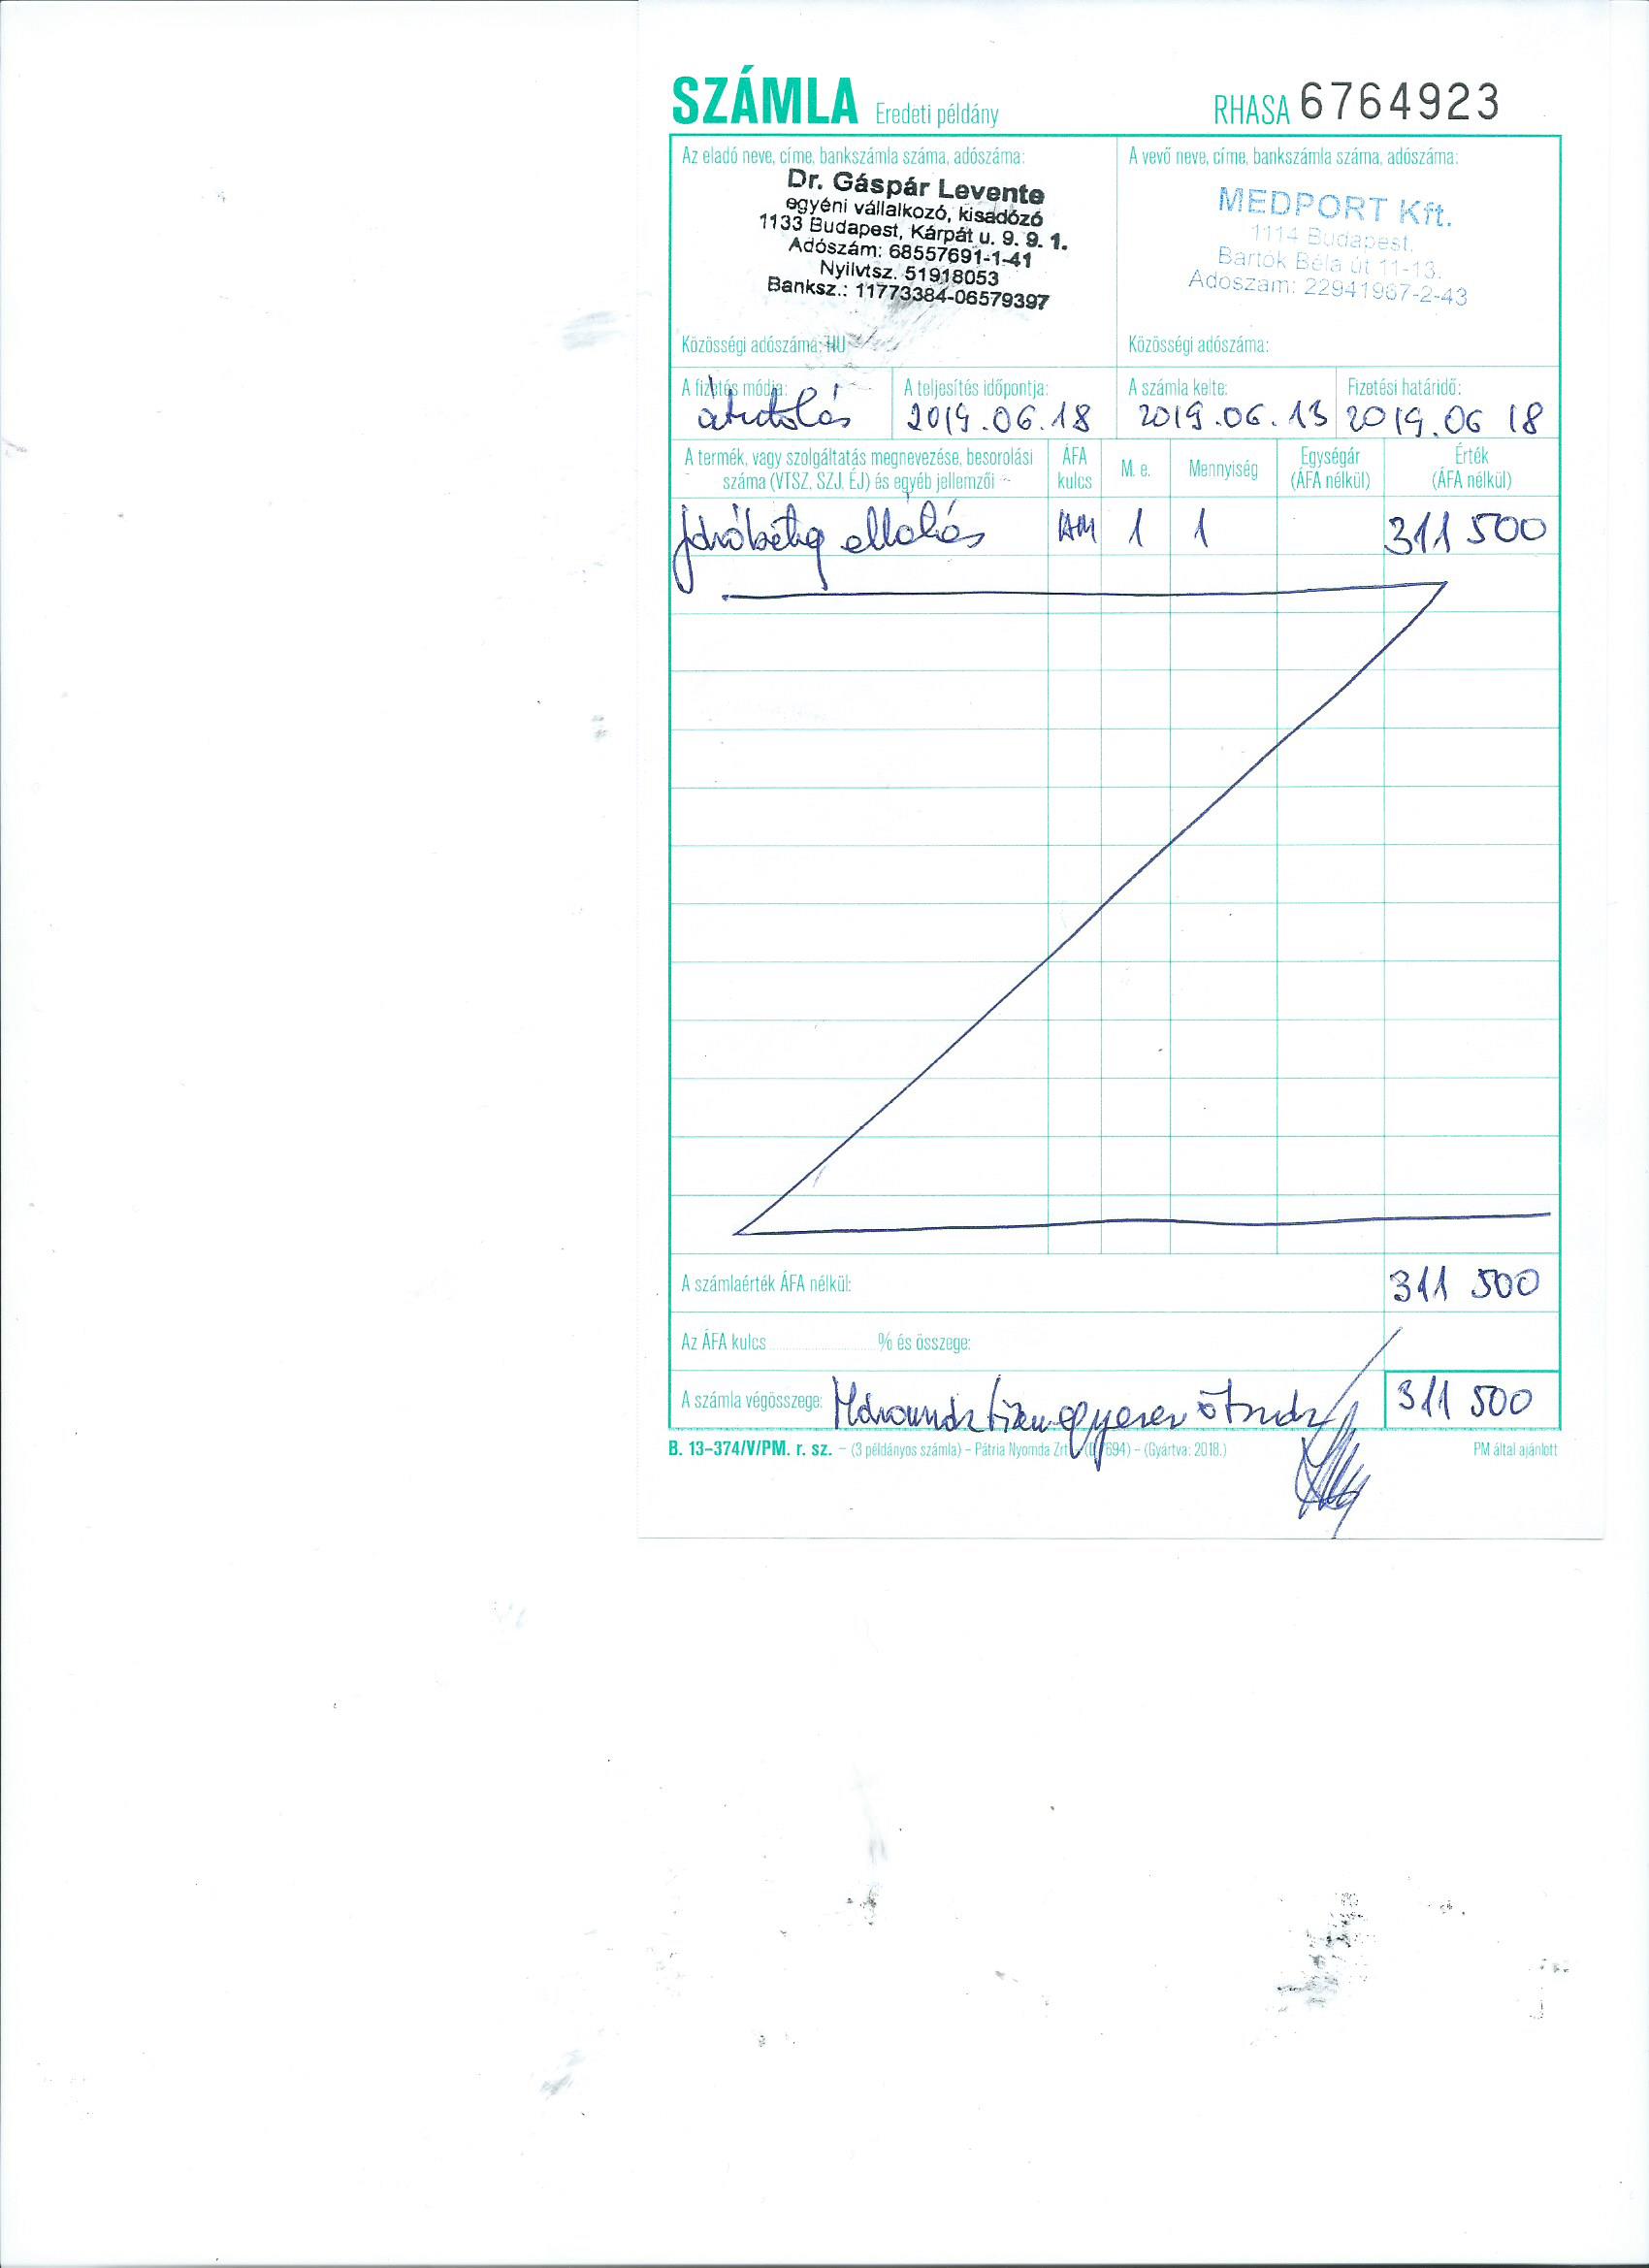 SZÁMLA Eredeti példány RHASA 6764923
Az eladó neve, címe, bankszámla száma, adószáma:
Dr. Gáspár Levente
egyéni vállalkozó, kisadózó
1133 Budapest, Kárpát u. 9. 9. 1.
Adószám: 68557691-1-41
Nyilvtsz. 51918053
Banksz.: 11773384-06579397
Közösségi adószáma: HU
A vevő neve, címe, bankszámla száma, adószáma:
MEDPORT Kft.
1114 Budapest,
Bartók Béla út 11-13.
Adószám: 22941967-2-43
Közösségi adószáma:
A fizetés módja:
átutalás
A teljesítés időpontja:
2019.06.18
A számla kelte:
2019.06.13
Fizetési határidő:
2019.06 18
A termék, vagy szolgáltatás megnevezése, besorolási
száma (VTSZ, SZJ, ÉJ) és egyéb jellemzői
ÁFA
kulcs
M. e.
Mennyiség
Egységár
(ÁFA nélkül)
Érték
(ÁFA nélkül)
járóbeteg ellátás AM 1 1 311 500
A számlaérték ÁFA nélkül: 311 500
Az ÁFA kulcs % és összege:
A számla végösszege: Háromszáztizenegyezer ötszáz 311 500
B. 13–374/V/PM. r. sz. – (3 példányos számla) – Pátria Nyomda Zrt. 694) – (Gyártva: 2018.) PM által ajánlott